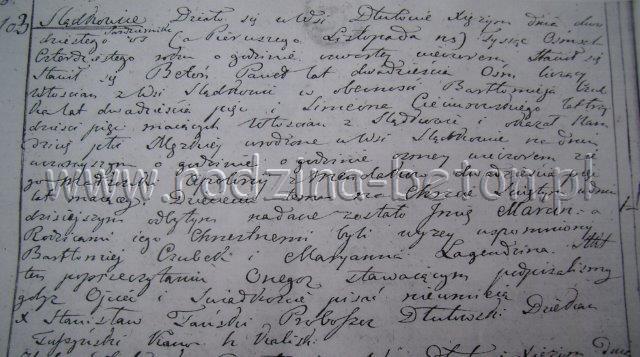 103 Slądkowie Działo się w Wsi Dłutowie Xiężym dnia dwu
dziestego Października (a Pierwszego Listopada ns) Tysiąc Ośmset
Czterdziestego roku o godzinie czwartej wieczorem Stawił się
Stawił się Betoń Paweł lat dwadzieścia Ośm liczący
Włościan z Wsi Slądkowic w obecności Bartłomieja Czu
lat dwadzieścia pięć i Szimona trzy
dzieści pięć mających Włościan z Slądkowic i okazał Nam
Dziecię płci Męzkiej urodzone w Wsi Slądkowie na dniu
wczorajszym o godzinie o godzinie wieczorem z je
go małżonki Apolonii z dwadzieścia pięć
lat mającej Dziecięciu temu na Chrzcie Świętym w dniu
dzisiejszym odbytym nadane zostało Imię Marcin a
Rodzicami jego Chrzestnemi byli wyżej wspomniony
Bartłomiej Czubek i Maryanna Lagendzina. Akt
ten po przeczytaniu Onego stawającym podpisaliśmy
gdyż Ojciec i Świadkowie pisać nieumieją
X Stanisław Tański Proboszcz Dłutowski Dziekan
Tuszyński Kanon. h. Kaliski.
www.rodzina-beton.pl